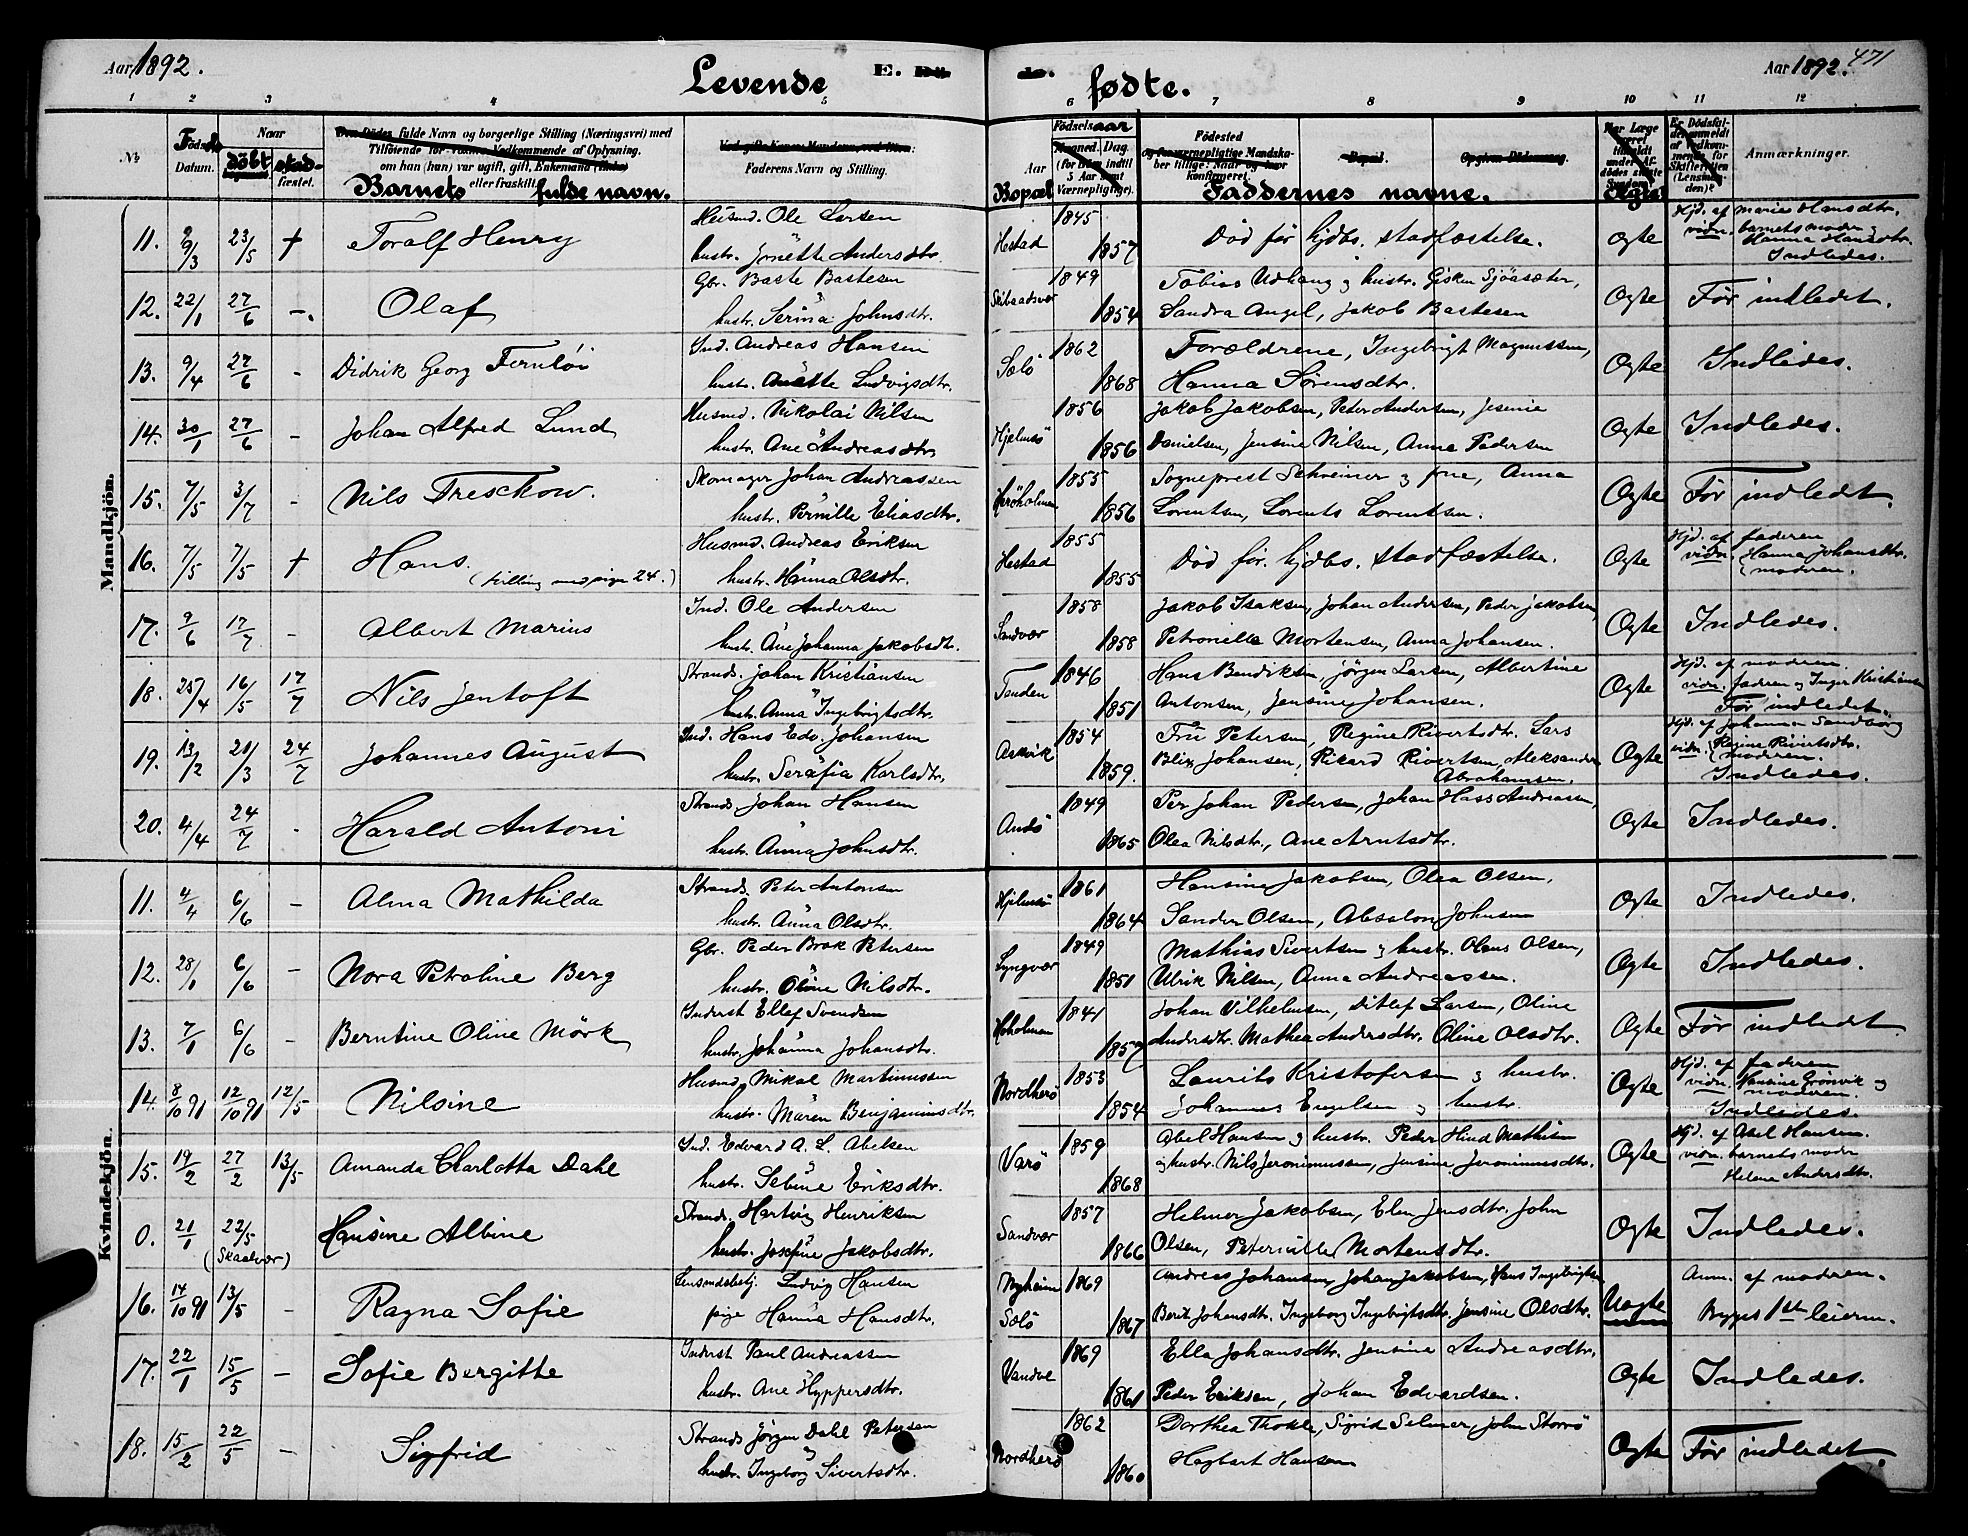 Aar 1892.
Levende E. Dö- de. fødte.
Aar 1892. 471
1 2 3 4 5 6 7 8 9 10 11 12
No Født Datum. Naar døbt stadfæstet.
Barnets fulde navn.
Faderens Navn og Stilling.
Bopæl
Fødselsaar
Faddernes navne.
Ægte
Anmærkninger.
Mandkjön.
11. 9/3 23/5 † Toralf Henry
Husmd. Ole Larsen
hustr. Jonette Andersdtr.
Hestad 1845 1857
Død før hjdbs. stadfæstelse.
Ægte
Hjd. af Marie Hansdtr.
vidn. barnets moder og
Hanna Hansdtr.
Indledes.
12. 22/1 27/6 -. Olaf
Gbr. Baste Bastesen
hustr. Serina Johnsdtr.
Skibaadsvær 1849 1854
Tobias Udhaug og hustr. Gisken Sjøasæter,
Sandra Angel, Jakob Bastesen
Ægte
Før indledet.
13. 9/4 27/6 - Didrik Georg Fernløi
Ind. Andreas Hansen
hustr. Anette Ludvigsdtr.
Sølö 1862 1868
Forældrene, Ingebrigt Magnussen,
Hanna Sørensdtr.
Ægte
Indledes.
14. 30/1 27/6 - Johan Alfred Lund
Husmd. Nikolai Nilsen
hustr. Ane Andreasdtr.
Hjelmsö 1856 1856
Jakob Jakobsen, Peter Andersen, Jesenie
Danielsen, Jensine Nilsen, Anna Pedersen
Ægte
Indledes.
15. 7/5 3/7 - Nils Treschow.
Skomager Johan Andreassen
hustr. Pernille Eliasdtr.
Herøholmen 1855 1856
Sogneprest Schreiner og frue, Anna
Lorentsen, Lorents Lorentsen.
Ægte
Før indledet.
16. 7/5 7/5 † Hans.
(tvilling med pige 24.)
Husmd. Andreas Eriksen
hustr. Hanna Olsdtr.
Hestad 1855 1855
Død før hjdbs. stadfæstelse.
Ægte
Hjd. af faderen
vidn. Hanna Johansdtr.
moderen.
17. 9/6 17/7 - Albert Marius
Ind. Ole Andersen
hustr. Ane Johanna Jakobsdtr.
Sandvær 1858 1858
Jakob Isaksen, Johan Andersen, Peder Jakobsen,
Petronella Mortensen, Anna Johansen.
Ægte
Indledes.
18. 25/4 16/5 17/7 Nils Jentoft
Strands. Johan Kristiansen
hustr. Anna Ingebrigtsdtr.
Tenden 1846 1851
Hans Bendiksen, Jørgen Larsen, Albertine
Antonsen, Jensine Johansen.
Ægte
Hjd. af moderen.
vidn. faderen og Inger Kristiansen
Før indledet.
19. 13/2 20/3 24/7 Johannes August
Ind. Hans Edv. Johansen
hustr. Serafia Karlsdtr.
Askvik 1854 1859.
Fru Petersen, Regine Rivertsdtr. Lars
Blix Johansen, Rikard Rivertsen, Aleksander
Abrahamsen.
Ægte
Hjd. af Johanna Sandberg
vidn. Regine Rivertsdtr.
moderen.
Indledes.
20. 4/4 24/7 - Harald Antoni
Strands. Johan Hansen
hustr. Anna Johnsdtr.
Andö 1849 1865
Per Johan Pedersen, Johan Hass Andreassen,
Olea Nilsdtr., Ane Arntsdtr.
Ægte
Indledes.
Kvindekjön.
11. 4/4 6/6 - Alma Mathilda
Strands. Peter Antonsen
hustr. Anna Olsdtr.
Hjelmsö 1861 1864
Hansine Jakobsen, Olea Olsen,
Sander Olsen, Absalon Johnsen
Ægte
Indledes.
12. 28/1 6/6 - Nora Petroline Berg
Gbr. Peder Brok Petersen
hustr. Oline Nilsdtr.
Lyngvær 1849 1851
Mathias Sivertsen og hustr. Olaus Olsen,
Ulrik Nilsen, Anna Andreassen.
Ægte
Indledes.
13. 7/1 6/6 - Berntine Oline Mörk
Inderst Ellef Svendsen
hustr. Johanna Johansdtr.
1841 1857
Johan Vilhelmsen, Ditlef Larsen, Oline
Andersdtr. Mathea Andersdtr. Oline Olsdtr.
Ægte
Før indledet
14. 8/10 91 12/10 91 12/5 Nilsine
Husmd. Mikal Martinussen
hustr. Maren Benjaminsdtr.
Nordherö 1853 1854
Laurits Kristofersen og hustr.
Johannes Engelsen og hustr.
Ægte
Hjd. af faderen
vidn. Nansine Grönvik og
moderen.
Indledes.
15. 19/2 27/2 13/5 Amanda Charlotta Dahl
Ind. Edvard A. L. Abelsen
hustr. Sebine Eriksdtr.
Varö 1859 1868
Abel Hansen og hustr. Peder Hind Mathisen
og hustr. Nils Jeronimussen, Jensine Jeronimusdtr.
Ægte
Hjd. af Abel Hansen.
vidn. barnets moder
Helene Andersdtr.
0. 21/1 22/5 (Skaalvær) Hansine Albine
Strands. Hartvig Henriksen
hustr. Josefine Jakobsdtr.
Sandvær 1857 1866
Helmer Jakobsen, Elen Jensdtr. John
Olsen, Peternille Mortensdtr.
Ægte
Indledes.
16. 14/10 91 13/5 - Ragna Sofie
Lensmdsbetj. Ludvig Hansen
pige Hanna Hansdtr.
Nyheim Sølö 1869 1867
Andreas Johansen, Johan Jakobsen, Hans Ingebrigtsen
Berit Johansdtr. Ingeborg Ingebrigtsdtr. Jensine Olsdtr.
Uægte
Anm. af moderen.
Begges 1ste leierm.
17. 22/1 15/5 - Sofie Bergitte
Inderst Paul Andreassen
hustr. Ane Hyppersdtr.
Vandve 1869 1861
Ella Johansdtr. Jensine Andreasdtr.
Peder Eriksen, Johan Edvardsen.
Ægte
Indledes.
18. 15/2 22/5 - Sigfrid
Strands. Jörgen Dahl Petersen
hustr. Ingeborg Sivertsdtr.
Nordherö 1862 1860
Dorthea Tholle, Sigrid Selmer, John Storrö
Hagbart Hansen
Ægte
Før indledet.